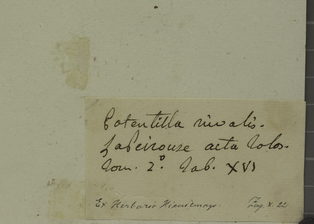 Potentilla nivalis.
Lapeirouse acta tolos.
tom. 2° tab. XVI
Ex Herbario Pag. 22